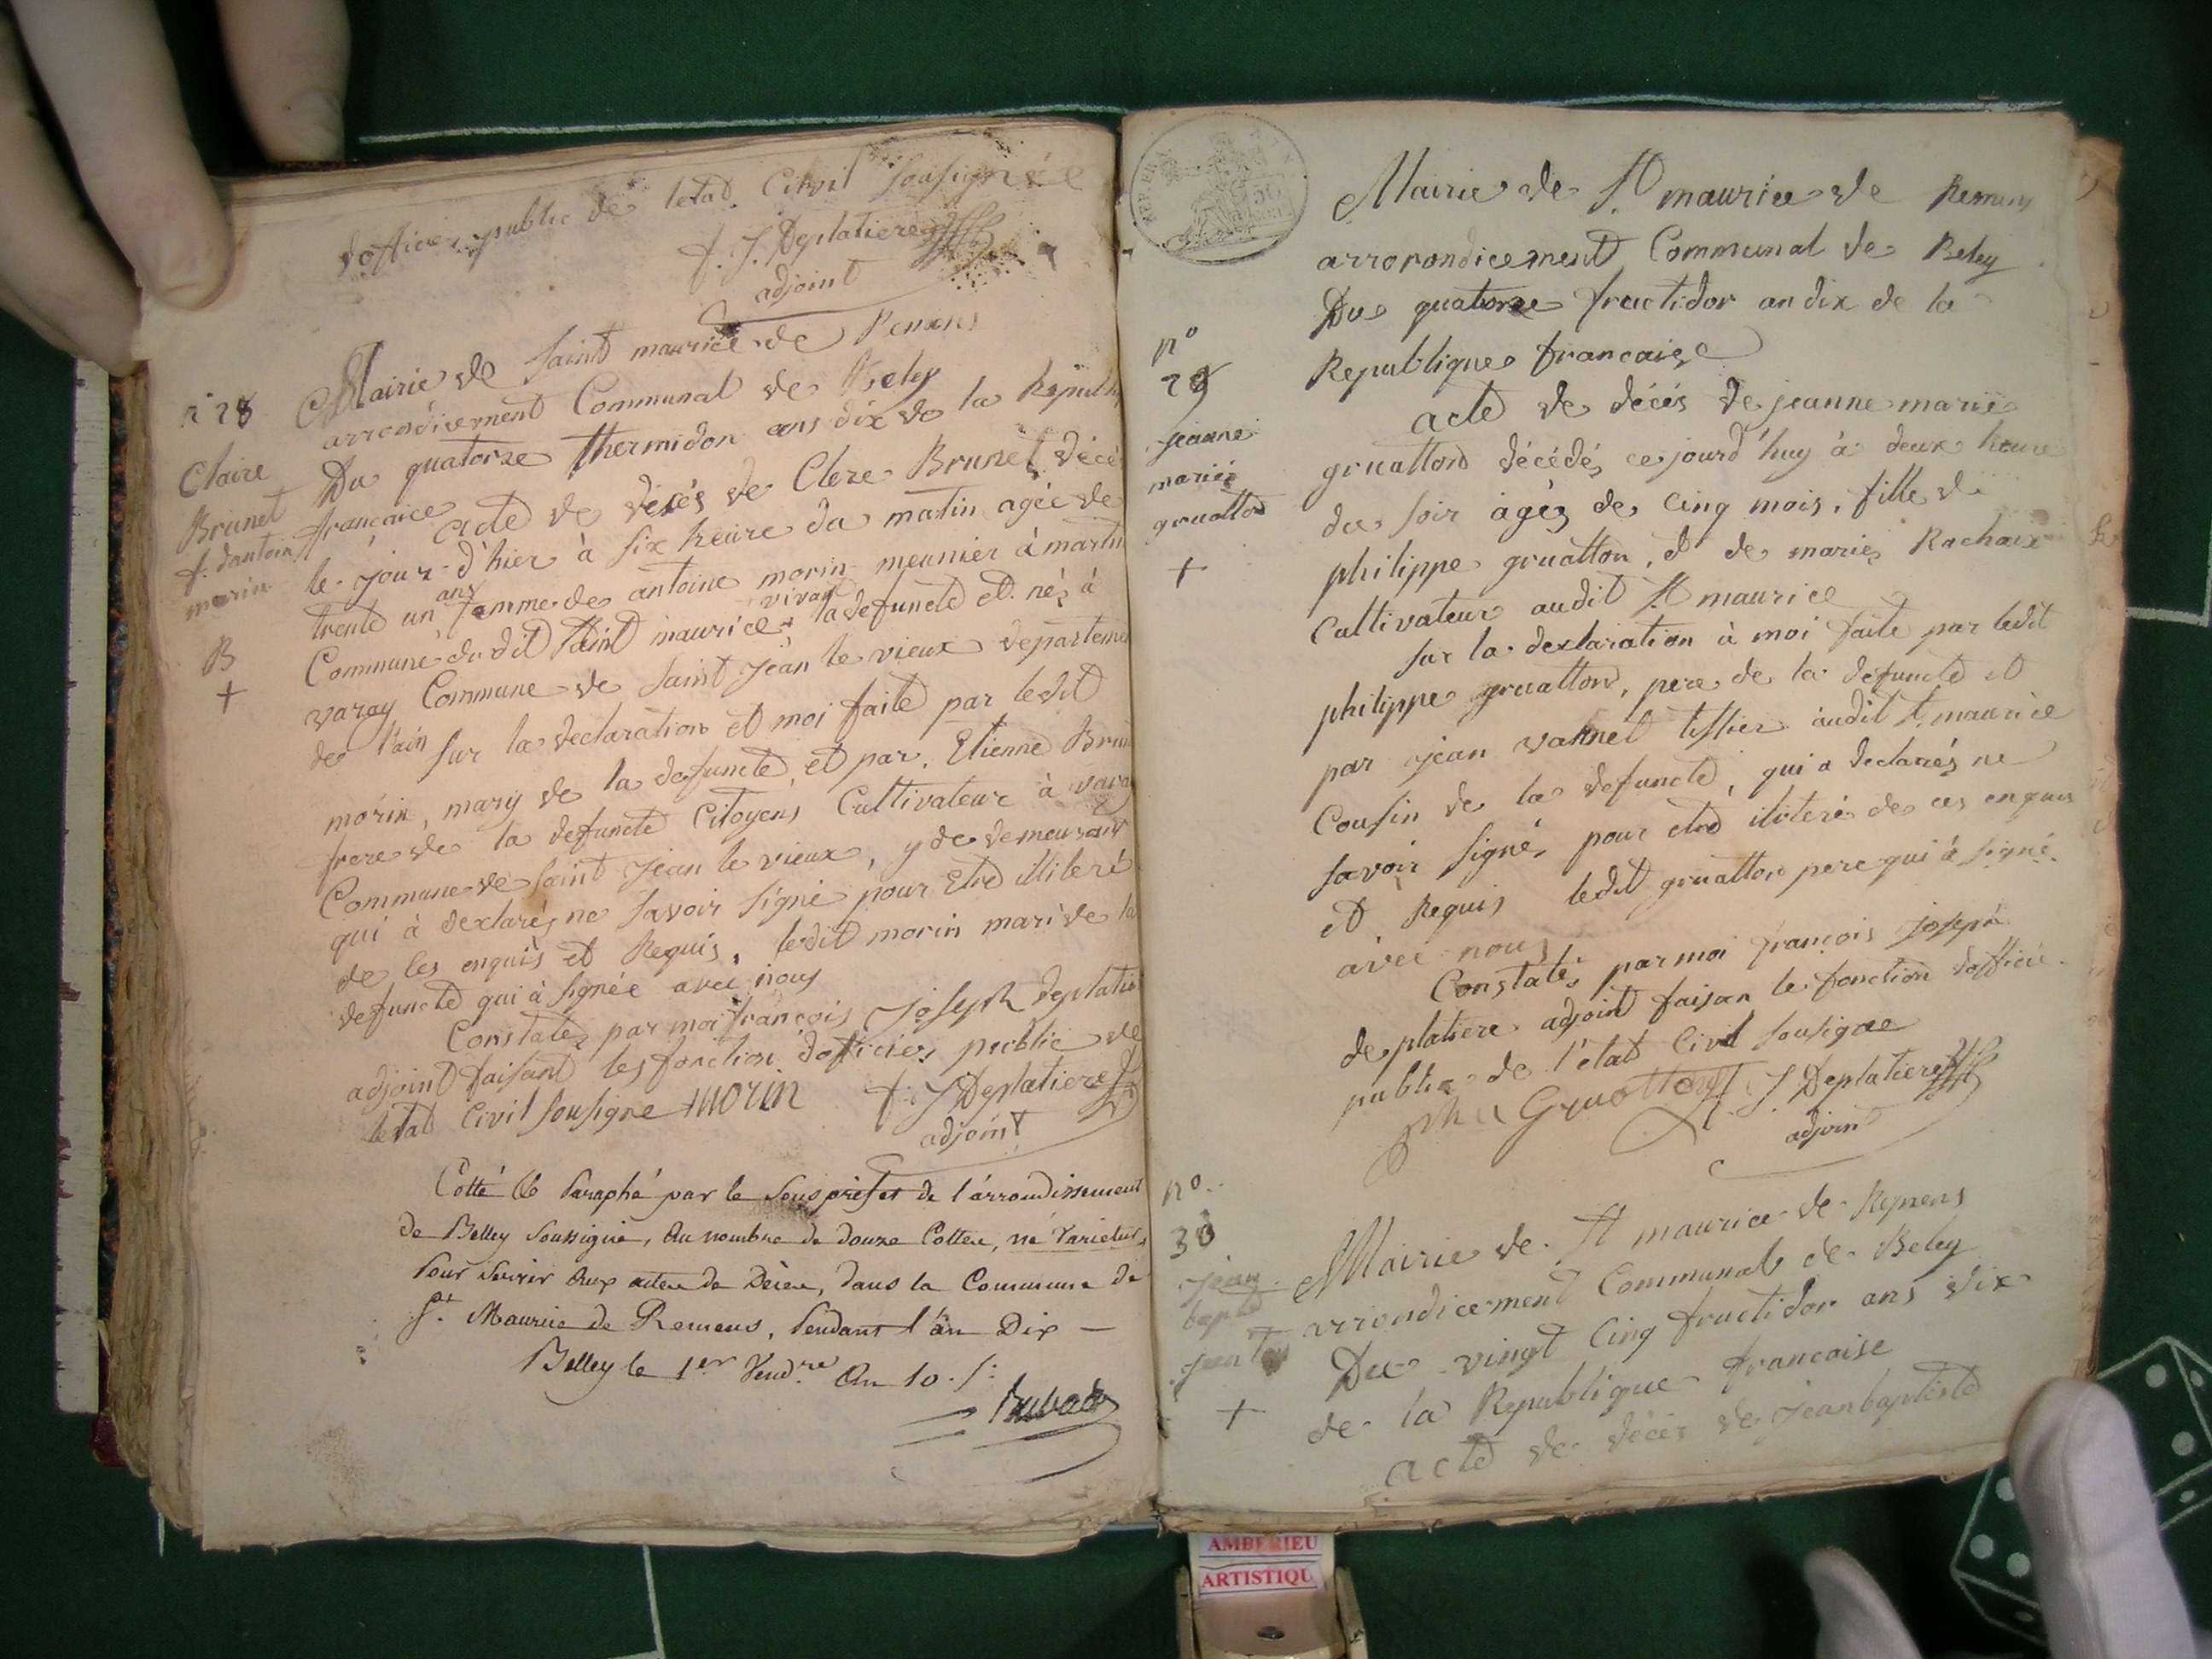 dofficier public de letad Civil sousignée
f. J. Deplatiere
adjoint
n° 28
Claire
Brunet
f. dantoin
morin
B
+
Mairie de Saint maurice de Remens
arrondicement Communal de Beley
Du quatorze thermidor ans dix de la Republi
francaice
acte de décés de Clere Brunet décé
le jour d'hier à six heure du matin agée de
trente un ans femme de antoine morin meunier à martin
Commune du dit Saint maurice vivant la defuncte et néz à
varay Commune de Saint jean le vieux departeme
de l'ain sur la declaration et moi faite par ledit
morin, mary de la defuncte, et par Etienne Brun
frere de la defuncte Citoyens Cultivateur à vara
Commune de Saint jean le vieux, y de demeurant
qui à declaréz ne savoir signé pour Etre illiteré
de les enquis et Requis, ledit morin mari de la
defuncte qui à signée avec nous
Constatéz par moi françois Joseph deplatie
adjoint faisant les fonction dofficier public de
letad Civil sousigne morin f. J Deplatiere
adjoint
Cotté & Paraphé par le Sous préfet de l'arrondissement
de Belley soussigné, au nombre de douze Cottes, né varietur,
Pour servir aux actes de Décès, dans la Commune de
St. Maurice de Remens, Pendant l'an Dix —
Belley le 1er Vend.re an 10.
Mairie de St maurice de Remens
arrorondicement Communal de Beley
Du quatorze fructidor an dix de la
Republique francaise
n°
29
jeanne
mariéz
gruatton
+
acte de décés de jeanne marie
gruatton décédéz ce jourd'huy à deux heure
du soir àgéz de Cinq mois, fille de
philippe gruatton, et de mariez Rachaix
Cultivateur audit St maurice
sur la declaration à moi faite par ledit
philippe gruatton, pere de la defuncte et
par jean vahnel tissier audit St maurice
Cousin de la defuncte, qui a declaréz ne
savoir signé pour etre iliteré de ces enquis
et Requis ledit gruatton pere qui à signé
avec nous
Constatéz par moi françois joseph
deplatiere adjoint faisan le fonction dofficie
public de l'état Civil sousigne
phe Gruatton f. J. Deplatiere
adjoint
n°
30
jean
baptd
+
Mairie de St maurice de Remens
arrondicement Communal de Beley
Du vingt Cinq fructidor ans dix
de la Republique francaise
acte de décés de jean baptiste
AMBERIEU
ARTISTIQU